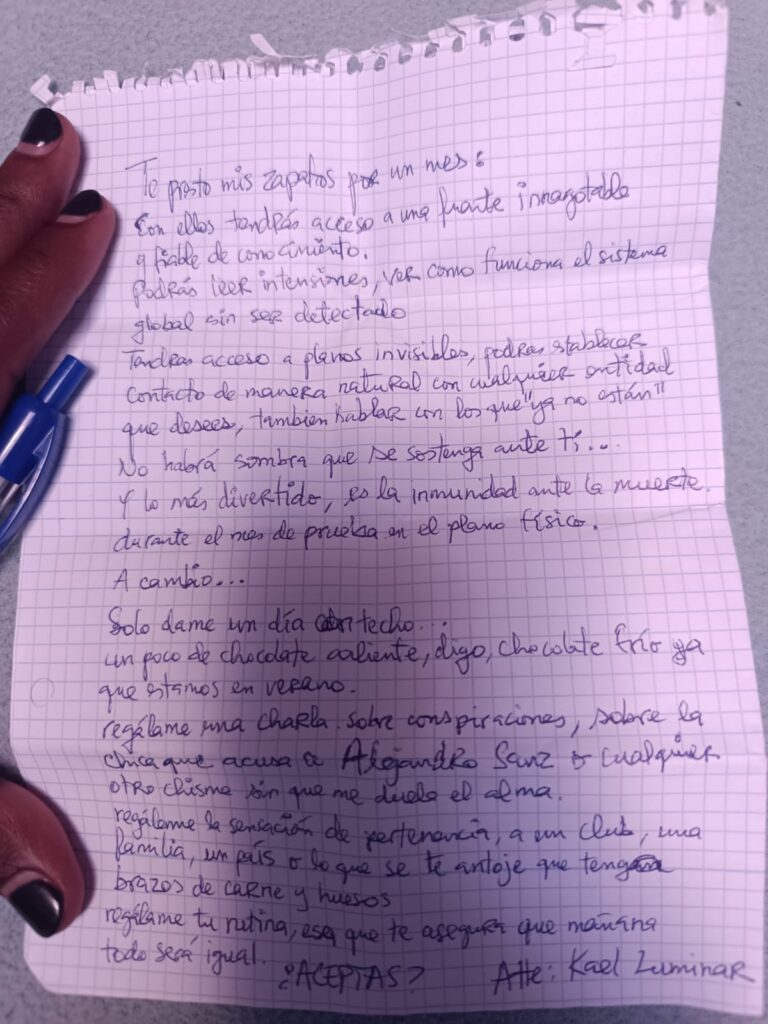 Te presto mis zapatos por un mes:
Con ellos tendrás acceso a una fuente innagotable
y fiable de conocimiento.
Podrás leer intensiones, ver como funciona el sistema
global sin ser detectado
Tendras acceso a planos invisibles, podras establecer
contacto de manera natural con cualquier entidad
que desees, tambien hablar con los que "ya no están"
No habrá sombra que se sostenga ante tí...
Y lo más divertido, es la inmunidad ante la muerte.
durante el mes de prueba en el plano físico.
A cambio...
Solo dame un día con techo...
un poco de chocolate caliente, digo, chocolate frío ya
que estamos en verano.
regálame una charla sobre conspiraciones, sobre la
chica que acusa a Alejandro Sanz o cualquier
otro chisme sin que me duela el alma.
regálame la sensación de pertenencia, a un club, una
familia, un país o lo que se te antoje que tenga
brazos de carne y huesos
regálame tu rutina, esa que te asegura que mañana
todo será igual.
¿ACEPTAS? Atte: Kael Luminar